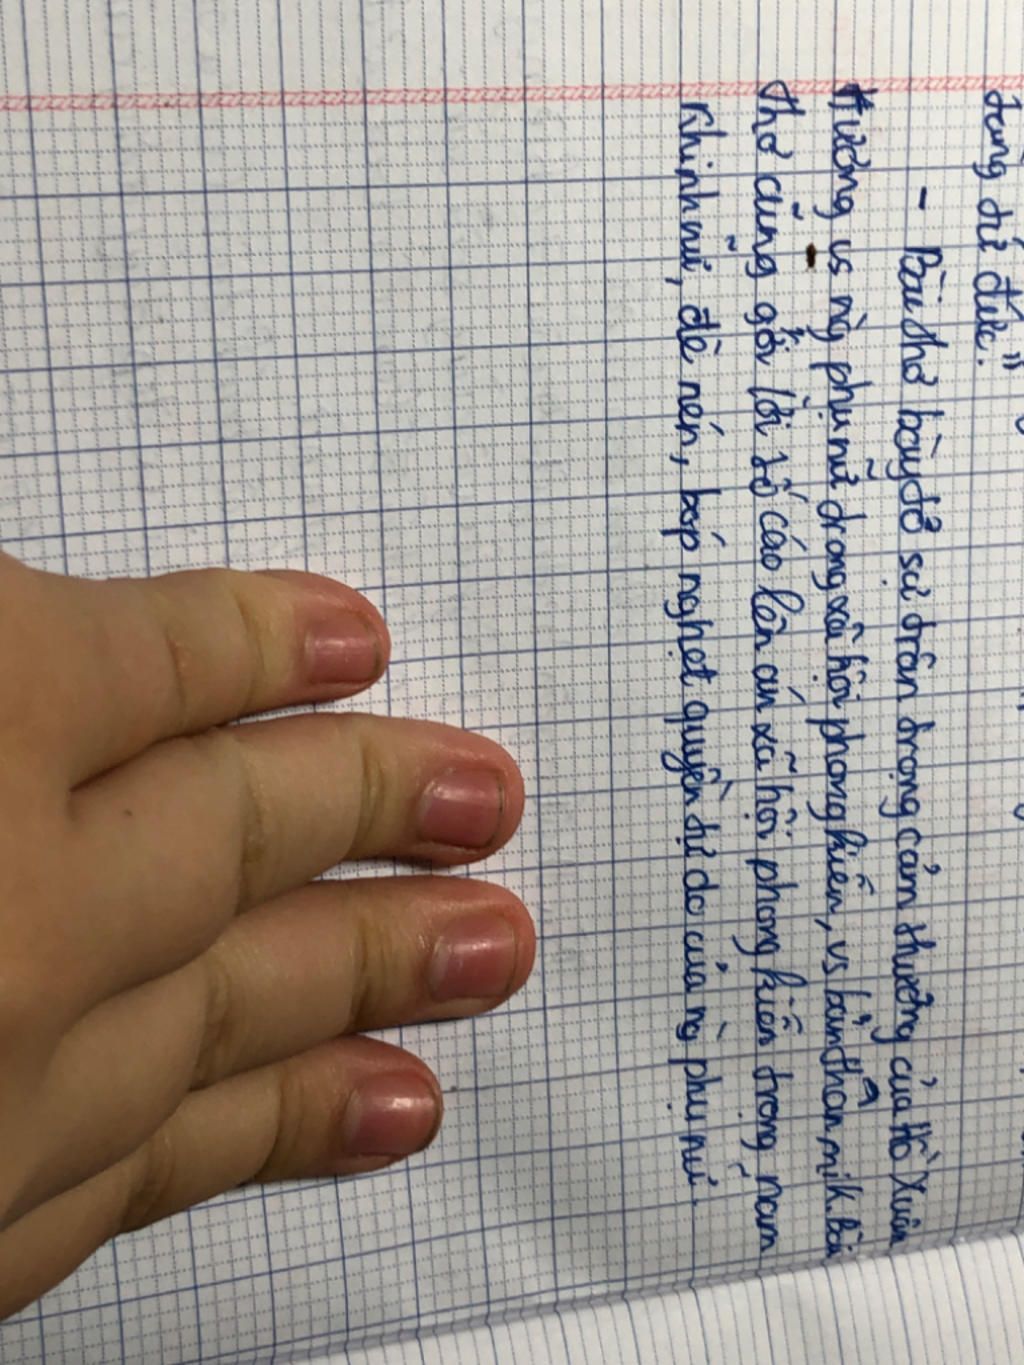 tứ đức."
- Bài thơ bày tỏ sự trân trọng cảm thương của Hồ Xuân
Hương vs ng phụ nữ trong xã hội phong kiến, vs bản thân mik. Bài
thơ cũng gởi lời tố cáo lên án xã hội phong kiến trọng nam
khinh nữ, đè nén, bóp nghẹt quyền tự do của ng phụ nữ.